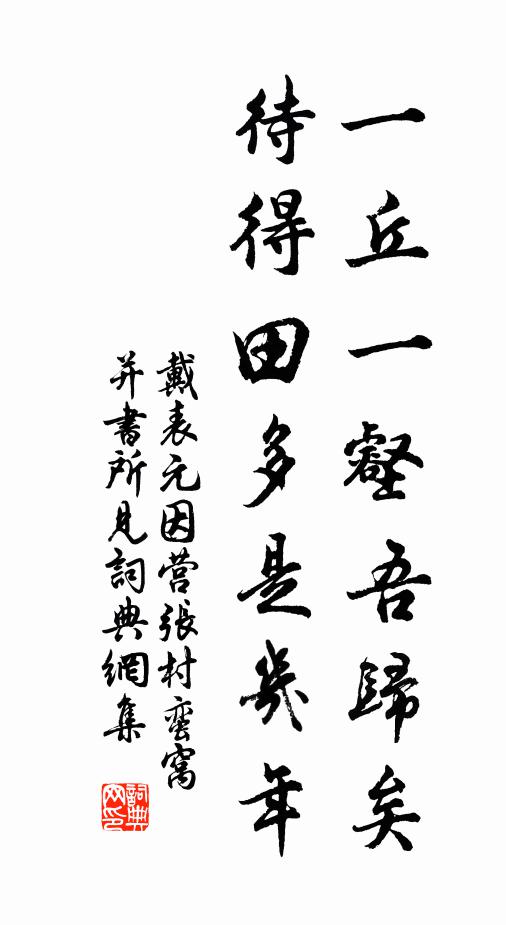 一丘一壑吾歸矣
待得田多是幾年
戴表元因营張村蛮窩
并書所見詞典網集
詞典网印